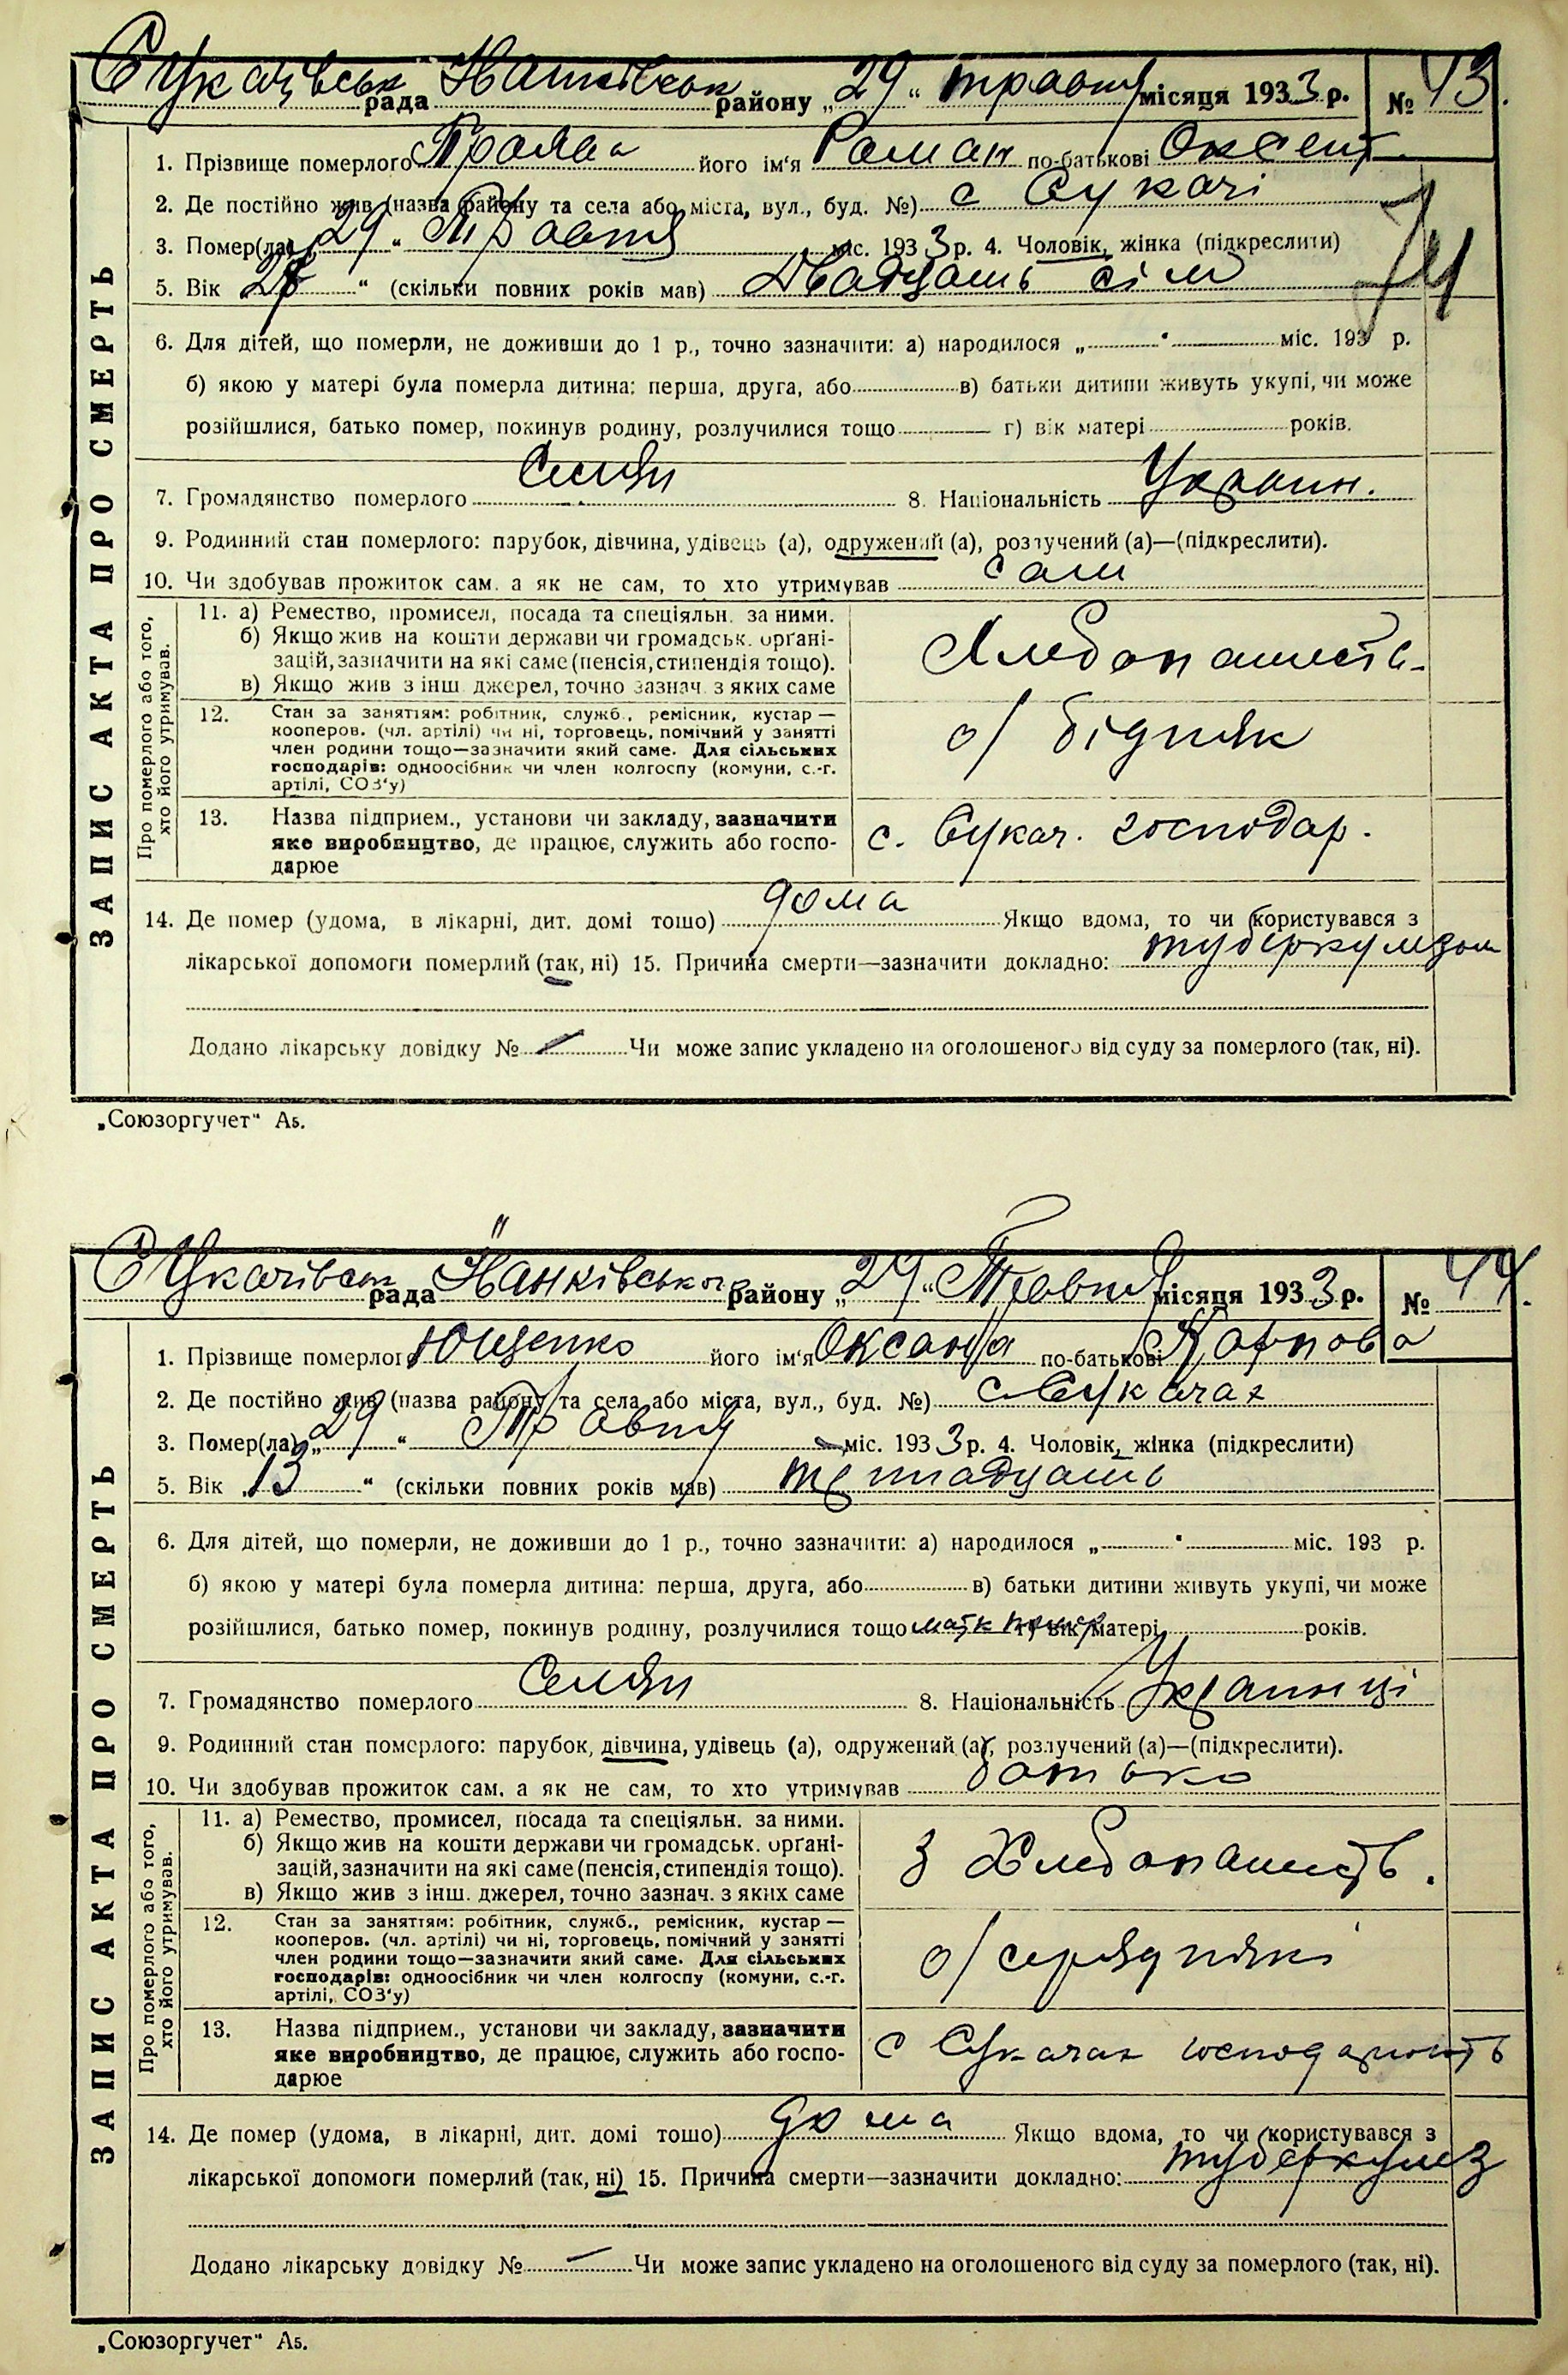 Сукачівськ рада Іванківськ району „29“ травня місяця 1933 р. № 43.
1. Прізвище померлого його ім'я Роман по-батькові Оксент.
2. Де постійно жив (назва району та села або міста, вул., буд. №) с Сукачі
3. Помер(ла) „29“ Травня міс. 1933 р. 4. Чоловік, жінка (підкреслити)
5. Вік 27 “ (скільки повних років мав) Двадцать сім
6. Для дітей, що померли, не доживши до 1 р., точно зазначити: а) народилося „ “ міс. 193 р.
б) якою у матері була померла дитина: перша, друга, або в) батьки дитини живуть укупі, чи може
розійшлися, батько помер, покинув родину, розлучилися тощо г) вік матері років.
7. Громадянство померлого Селян 8. Національність Украин.
9. Родинний стан померлого: парубок, дівчина, удівець (а), одружений (а), розлучений (а)—(підкреслити).
10. Чи здобував прожиток сам, а як не сам, то хто утримував сам
ЗАПИС АКТА ПРО СМЕРТЬ
Про померлого або того,
хто його утримував.
11. а) Ремество, промисел, посада та спеціяльн. за ними.
б) Якщо жив на кошти держави чи громадськ. орґані-
зацій, зазначити на які саме (пенсія, стипендія тощо).
в) Якщо жив з інш. джерел, точно зазнач. з яких саме
Хлебопашеств.
12. Стан за заняттям: робітник, служб., ремісник, кустар —
кооперов. (чл. артілі) чи ні, торговець, помічний у занятті
член родини тощо—зазначити який саме. Для сільських
господарів: одноосібник чи член колгоспу (комуни, с.-г.
артілі, СОЗ'у)
о/ бідняк
13. Назва підприєм., установи чи закладу, зазначити
яке виробництво, де працює, служить або госпо-
дарює
с. Сукач. господар.
14. Де помер (удома, в лікарні, дит. домі тощо) дома Якщо вдома, то чи користувався з
лікарської допомоги померлий (так, ні) 15. Причина смерти—зазначити докладно: туберкулезом
Додано лікарську довідку № Чи може запис укладено на оголошеного від суду за померлого (так, ні).
„Союзоргучет“ А5.
Сукачівськ рада Іванківського району „29“ Травня місяця 1933 р. № 44.
1. Прізвище померлого Ющенко його ім'я Оксана по-батькові Карпова
2. Де постійно жив (назва району та села або міста, вул., буд. №) с Сукачах
3. Помер(ла) „29“ Травня міс. 1933 р. 4. Чоловік, жінка (підкреслити)
5. Вік 13 “ (скільки повних років мав) тринадцать
6. Для дітей, що померли, не доживши до 1 р., точно зазначити: а) народилося „ “ міс. 193 р.
б) якою у матері була померла дитина: перша, друга, або в) батьки дитини живуть укупі, чи може
розійшлися, батько помер, покинув родину, розлучилися тощо г) вік матері років.
7. Громадянство померлого Селян 8. Національність Украинці
9. Родинний стан померлого: парубок, дівчина, удівець (а), одружений (а), розлучений (а)—(підкреслити).
10. Чи здобував прожиток сам, а як не сам, то хто утримував батько
ЗАПИС АКТА ПРО СМЕРТЬ
Про померлого або того,
хто його утримував.
11. а) Ремество, промисел, посада та спеціяльн. за ними.
б) Якщо жив на кошти держави чи громадськ. орґані-
зацій, зазначити на які саме (пенсія, стипендія тощо).
в) Якщо жив з інш. джерел, точно зазнач. з яких саме
З Хлебопашеств.
12. Стан за заняттям: робітник, служб., ремісник, кустар —
кооперов. (чл. артілі) чи ні, торговець, помічний у занятті
член родини тощо—зазначити який саме. Для сільських
господарів: одноосібник чи член колгоспу (комуни, с.-г.
артілі, СОЗ'у)
о/ середнякі
13. Назва підприєм., установи чи закладу, зазначити
яке виробництво, де працює, служить або госпо-
дарює
с Сукачах
14. Де помер (удома, в лікарні, дит. домі тощо) дома Якщо вдома, то чи користувався з
лікарської допомоги померлий (так, ні) 15. Причина смерти—зазначити докладно: туберкулез
Додано лікарську довідку № Чи може запис укладено на оголошеного від суду за померлого (так, ні).
„Союзоргучет“ А5.